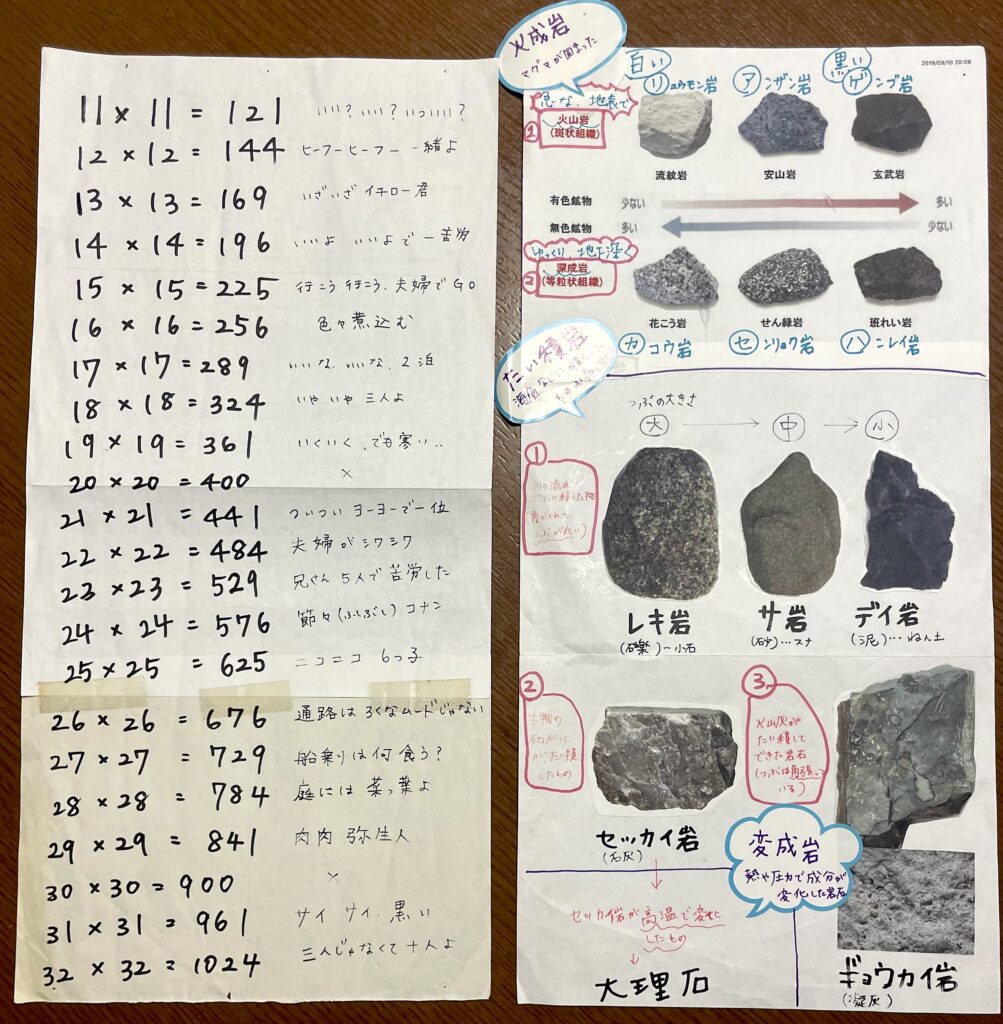 11 × 11 = 121 いい?いい?いついい?
12 × 12 = 144 ヒーフーヒーフー 一緒よ
13 × 13 = 169 いざいざ イチロー君
14 × 14 = 196 いいよ いいよで 一苦労
15 × 15 = 225 行こう 行こう、夫婦でGO
16 × 16 = 256 色々煮込む
17 × 17 = 289 いいな、いいな、2泊
18 × 18 = 324 いや いや 三人よ
19 × 19 = 361 いくいく、でも寒い..
20 × 20 = 400 ×
21 × 21 = 441 ついつい ヨーヨーで一位
22 × 22 = 484 夫婦がシワシワ
23 × 23 = 529 兄さん 5人で苦労した
24 × 24 = 576 節々(ふしぶし) コナン
25 × 25 = 625 ニコニコ 6つ子
26 × 26 = 676 通路は ろくなムードじゃない
27 × 27 = 729 船乗りは何食う?
28 × 28 = 784 庭には 菜っ葉よ
29 × 29 = 841 肉肉 弥生人
30 × 30 = 900 ×
31 × 31 = 961 サイ サイ、黒い
32 × 32 = 1024 三人じゃなくて 十人よ
火成岩
マグマが固まった
2019/09/10 20:06
白い
黒い
リュウモン岩 アンザン岩 ゲンブ岩
急な、地表で
① 火山岩
(斑状組織)
流紋岩 安山岩 玄武岩
有色鉱物 少ない 多い
無色鉱物 多い 少ない
ゆっくり、地下深く
② 深成岩
(等粒状組織)
花こう岩 せん緑岩 班れい岩
カコウ岩 センリョク岩 ハンレイ岩
たい積岩
つぶの大きさ
大 中 小
①
川の流れ
でたい積した物
(角がとれて
つぶが丸い)
レキ岩 サ岩 デイ岩
(石礫)…小石 (砂)…スナ (泥)…ねん土
②
生物の
死がい
がたい積
したもの
セッカイ岩
(石灰)
③
火山灰が
たい積して
できた岩石
(つぶは角張って
いる)
変成岩
熱や圧力で成分が
変化した岩石
セッカイ岩が高温で変化
したもの
大理石
ギョウカイ岩
(凝灰)